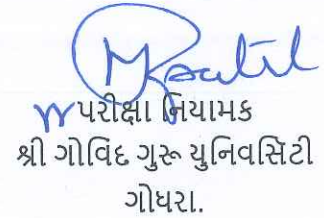 પરીક્ષા નિયામક
શ્રી ગોવિંદ ગુરૂ યુનિવર્સિટી
ગોધરા.